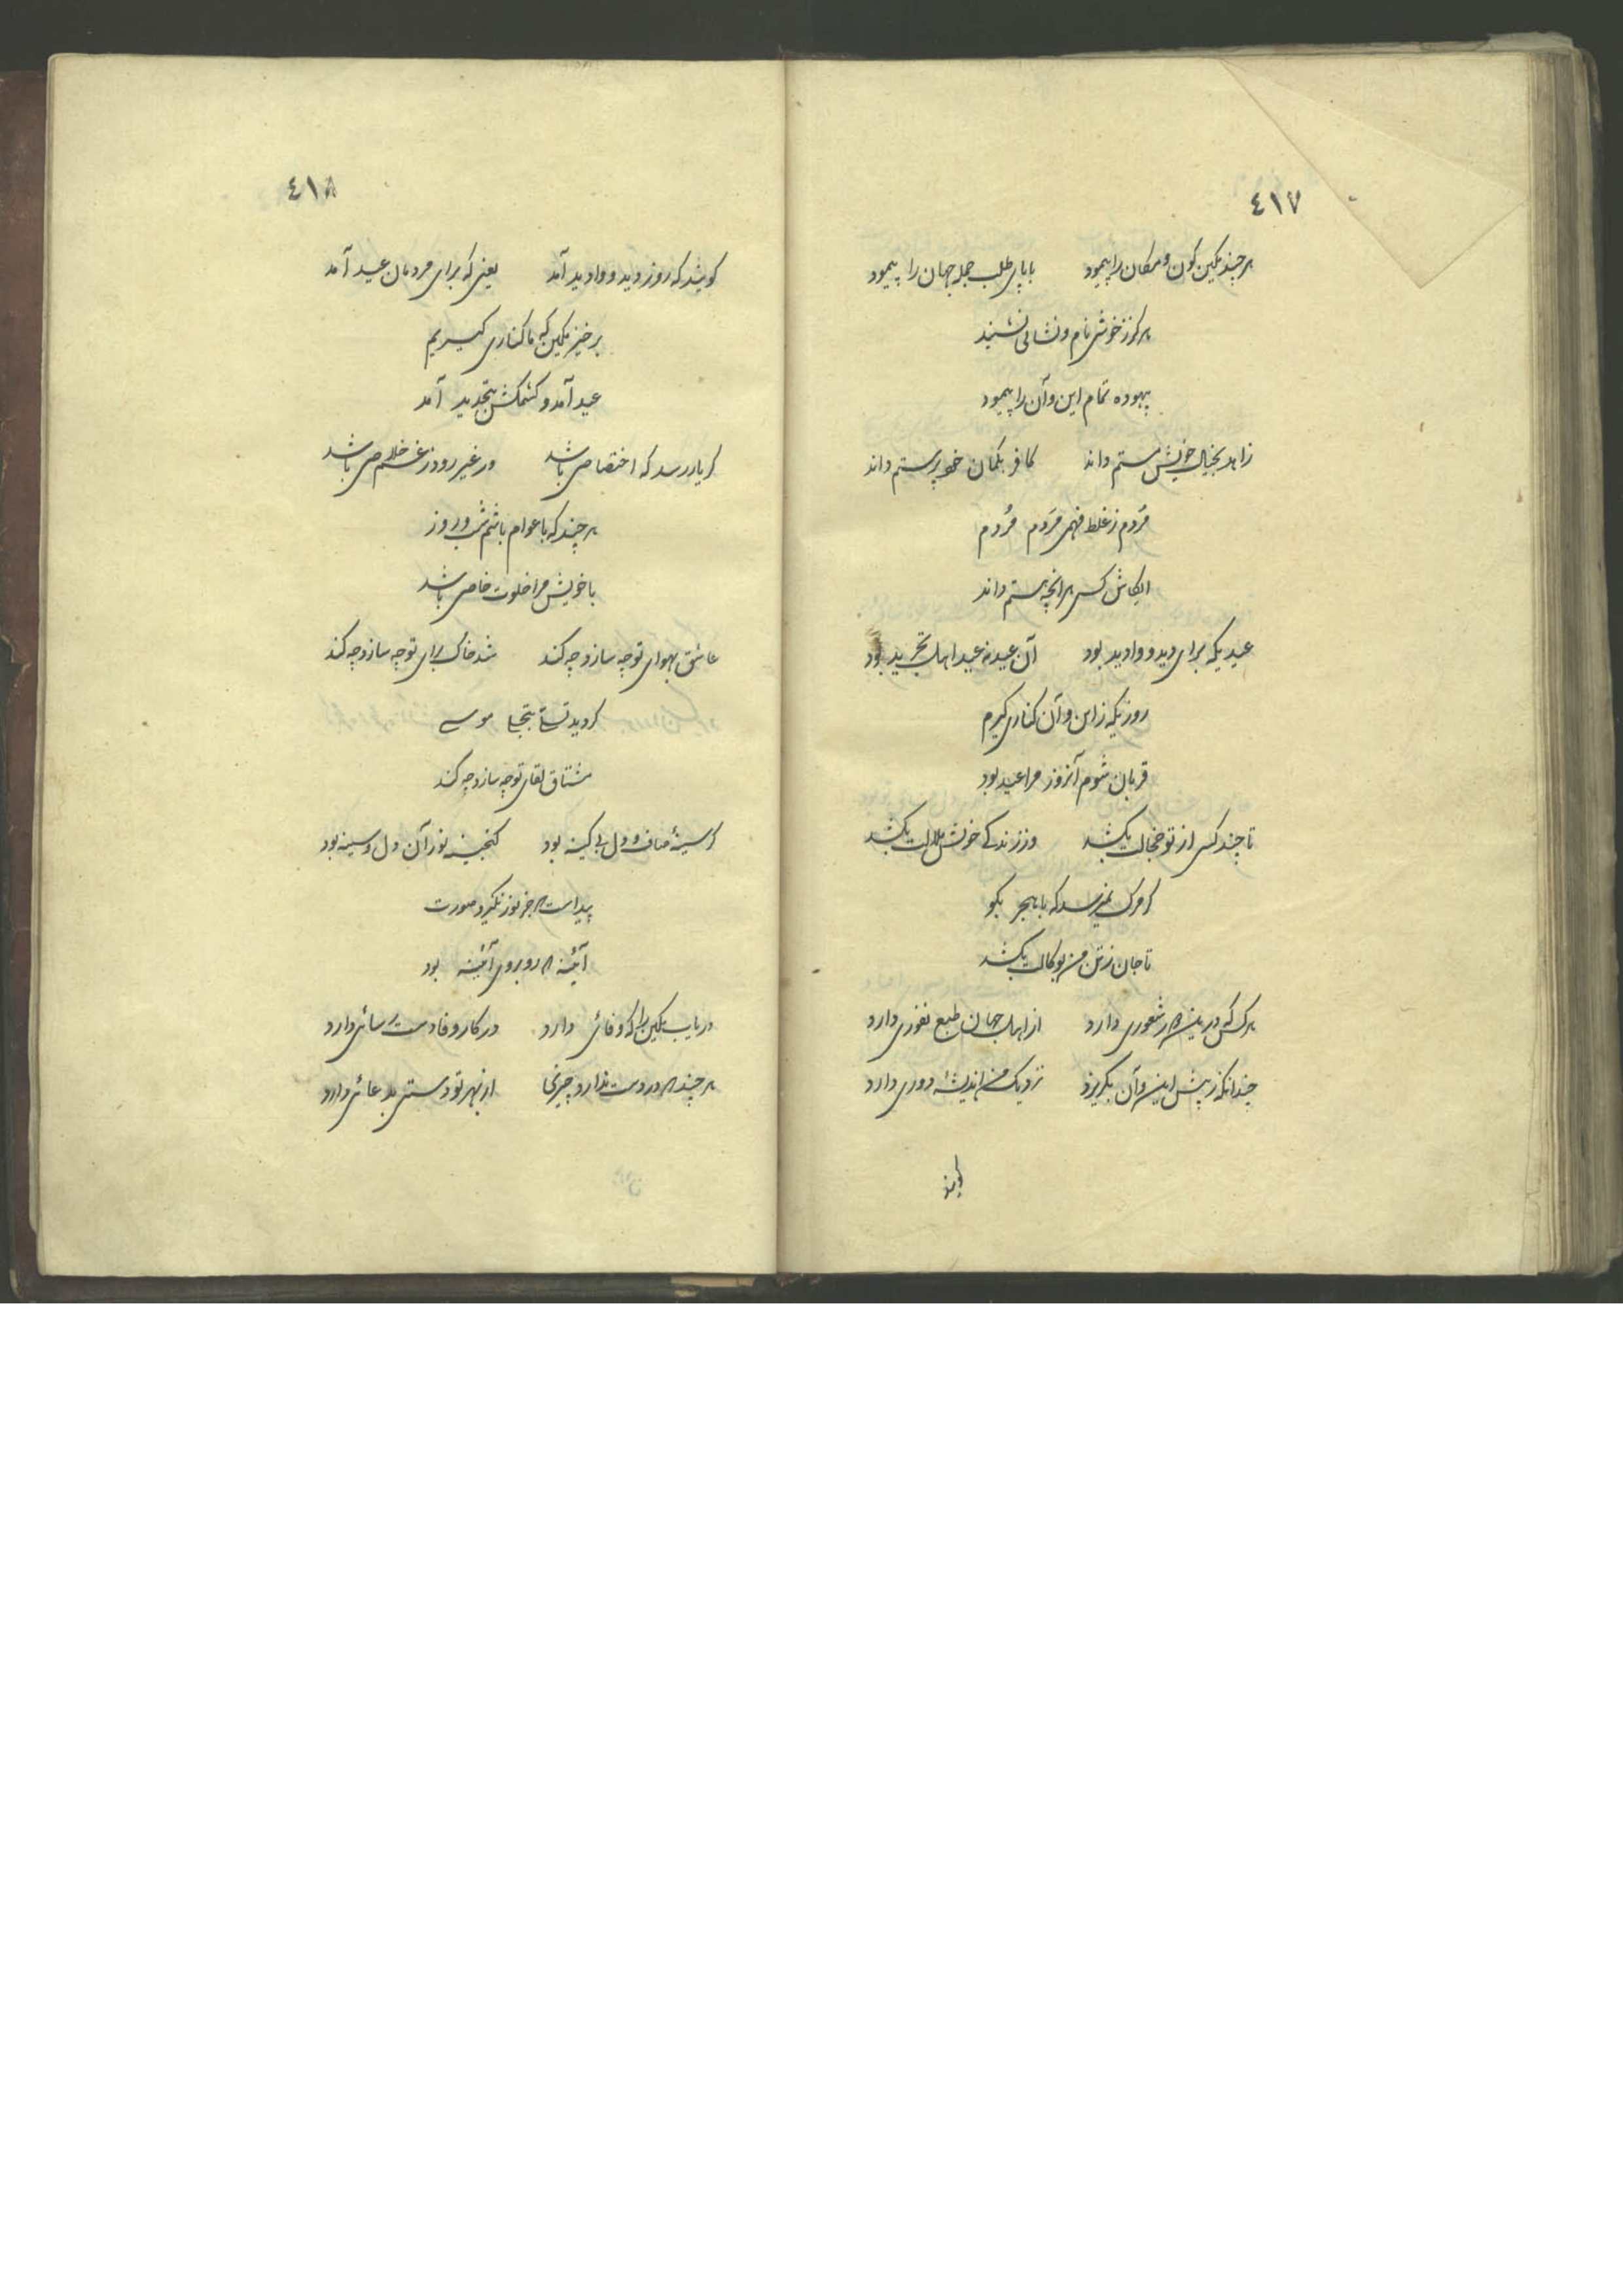 ٤١٧
هرچند مکین کون و مکان را پیمود با پای طلب جمله جهان را پیمود
هرگز ز خودش نام و نشانی نشنید
بیهوده تمام این و آن را پیمود
زاهد بخیال خویش مستم داند کافر بگمان خود پرستم داند
مَردم ز غلط فهمی مَردم مُردم
ایکاش کسی هر انچه هستم داند
عیدیکه برای دید و وادید بود آن عید نه عید اهل تجرید بود
روزیکه ز این و آن کناری گیرم
قربان شوم آنروز مرا عید بود
تا چند کسی از تو خجالت بکشد وز زندگی خودش ملالت بکشد
گر مرگ نمیرسد که با هجر بگو
تا جان ز تن من بوکالت بکشد
هرکس که درین شعوری دارد از اهل جهان طبع نفوری دارد
چندانکه ز پیش این و آن بگریزد نزدیک من اندیشهٔ دوری دارد
٤١٨
گویند که روز دید و وادید آمد یعنی که برای مردمان عید آمد
برخیز مکین که ما کناری گیریم
عید آمد و کشمکش بتجدید آمد
گر یار رسد که اختصاصی باشد ور غیر رود ز غم خلاصی باشد
هرچند که با عوام باشم شب و روز
با خویش مرا خلوت خاصی باشد
عاشق بهوای تو چه سازد چه کند شد خاک برای تو چه سازد چه کند
گردید تسلی بتجلی موسی
مشتاق لقای تو چه سازد چه کند
گر سینهٔ صاف و دل بی کینه بود گنجینه نور آن دل و سینه بود
پیداست که جز نور نگیرد صورت
آئینه که روبروی آئینه بود
دریاب مکین را که وفائی دارد در کار وفا دست رسائی دارد
هرچند که در دست ندارد چیزی اما از بهر تو دستی بدعائی دارد